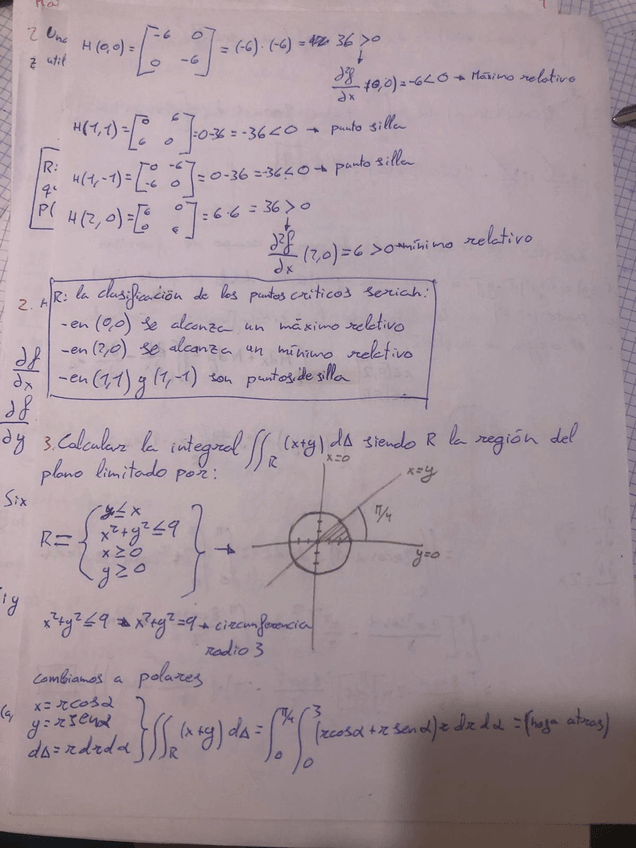 2 Una
z util
H(0,0) = [-6 0 0 -6] = (-6)·(-6) = 36 > 0
∂²f/∂x (0,0) = -6 < 0 → Máximo relativo
H(1,1) = [0 6 6 0] = 0-36 = -36 < 0 → punto silla
R:
q
P(
H(1,-1) = [0 -6 -6 0] = 0-36 = -36 < 0 → punto silla
H(2,0) = [6 0 0 6] = 6·6 = 36 > 0
∂²f/∂x (2,0) = 6 > 0 → mínimo relativo
2.
R: la clasificación de los puntos críticos serían:
- en (0,0) se alcanza un máximo relativo
- en (2,0) se alcanza un mínimo relativo
- en (1,1) y (1,-1) son puntos de silla
∂f/∂x
∂f/∂y
3. Calcular la integral ∬R (x+y) dA siendo R la región del
plano limitado por:
x=0
x=y
π/4
y=0
Six
R = { y ≤ x
x²+y² ≤ 9
x ≥ 0
y ≥ 0 } →
iy
x²+y² ≤ 9 → x²+y² = 9 → circunferencia
radio 3
cambiamos a polares
x = r cosα
y = r senα
dA = r dr dα } ∬R (x+y) dA = ∫0^π/4 ∫0^3 (r cosα + r senα) r dr dα = (hoja atras)